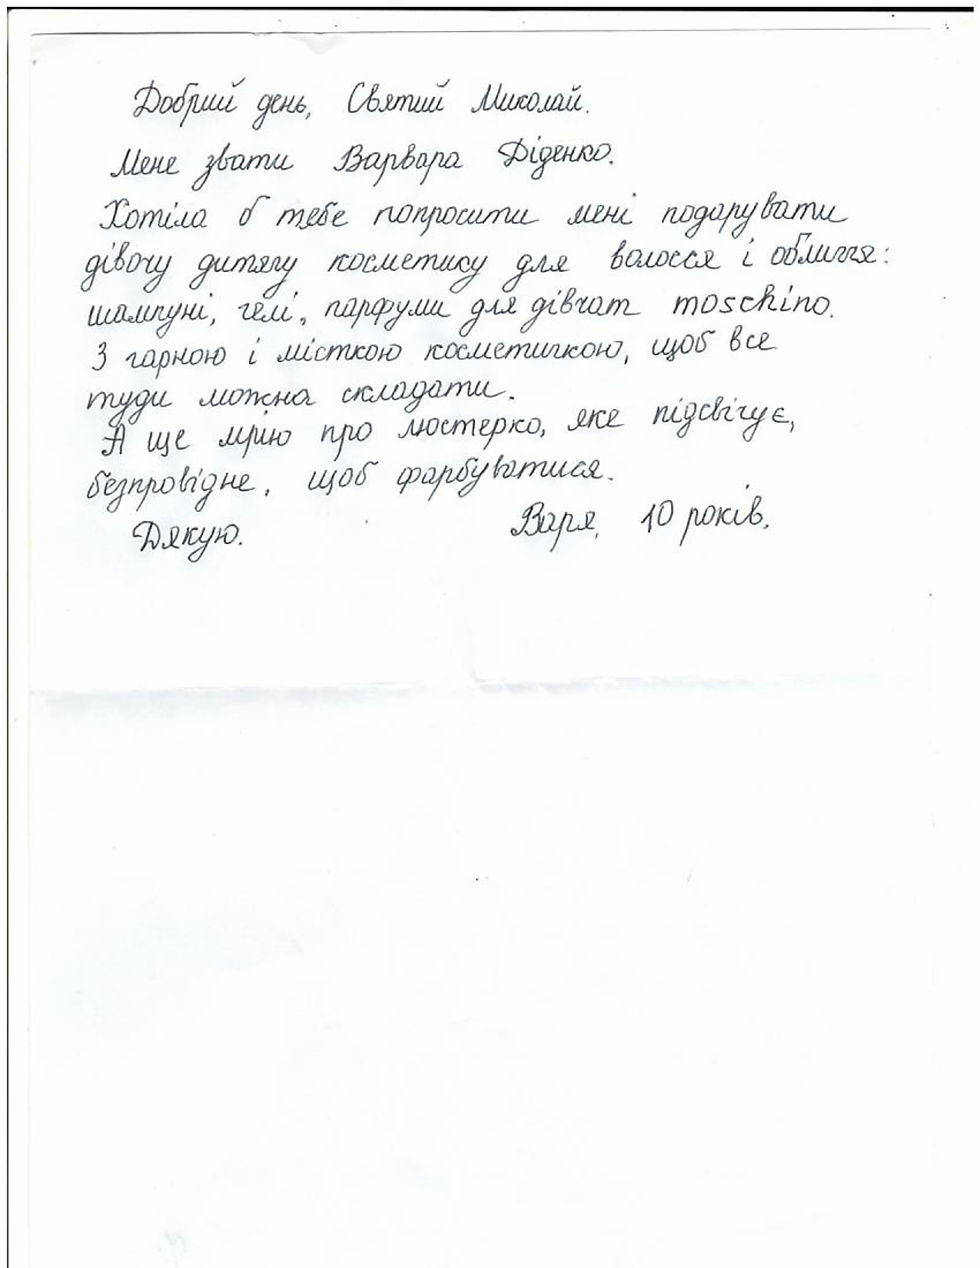 Добрий день, Святий Миколай.
Мене звати Варвара Діденко.
Хотіла б тебе попросити мені подарувати
дівочу дитячу косметику для волосся і обличчя:
шампуні, гелі, парфуми для дівчат moschino.
З гарною і місткою косметичкою, щоб все
туди можна складати.
А ще мрію про люстерко, яке підсвічує,
безпровідне, щоб фарбуватися.
Дякую. Варя, 10 років.